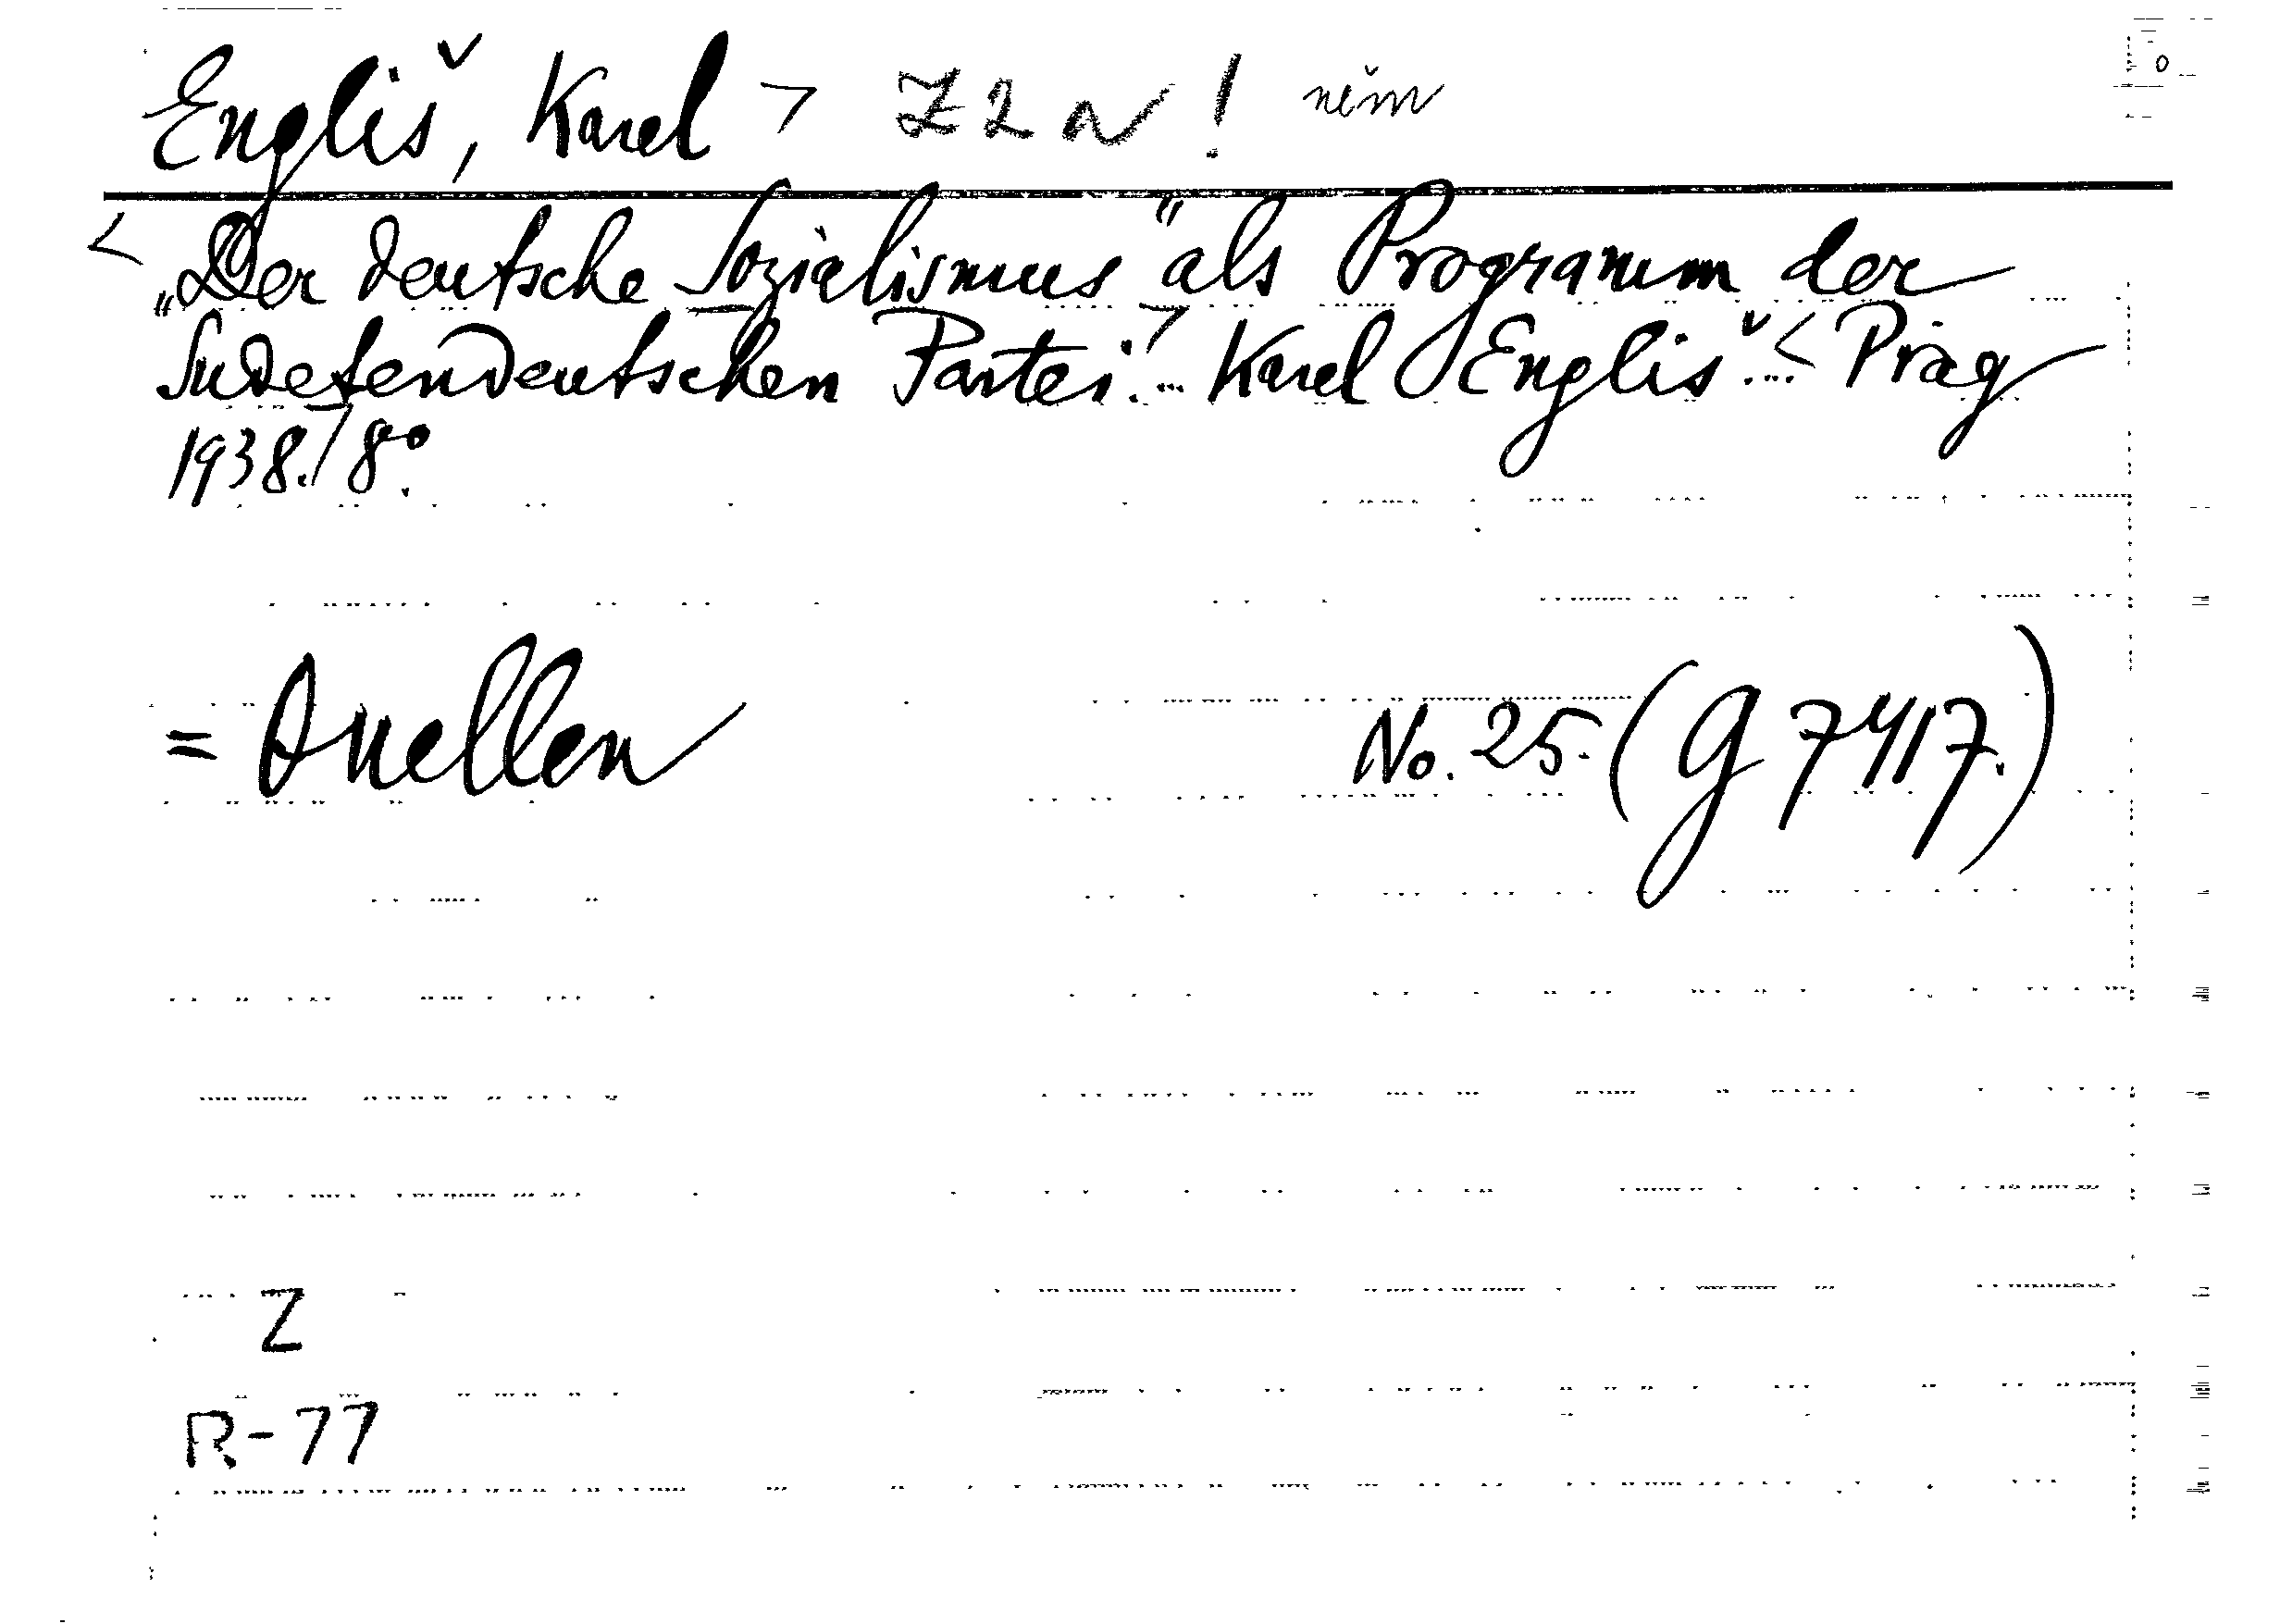 Engliš, Karel > Z 2 N ! něm
< „Der deutsche Sozialismus“ als Programm der
Sudetendeutschen Partei. > ... Karel Engliš ... < Prag
1938./8°.
= Quellen No. 25. (G 7417.)
Z
R-77